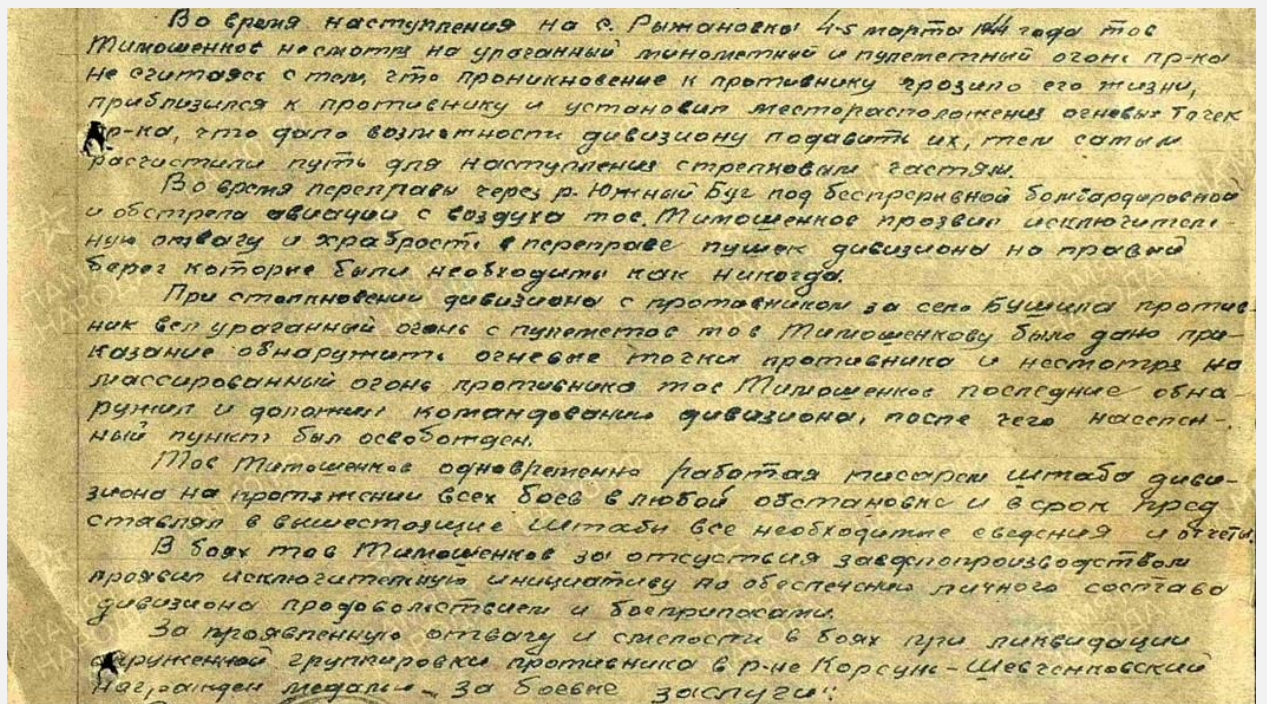 Во время наступления на с. Рыжановка 4-5 марта 1944 года тов
Тимошенков несмотря на ураганный минометный и пулеметный огонь пр-ка
не считаясь с тем, что проникновение к противнику грозило его жизни,
приблизился к противнику и установил месторасположения огневых точек
пр-ка, что дало возможность дивизиону подавить их, тем самым
расчистили путь для наступления стрелковым частям.
Во время переправы через р. Южный Буг под беспрерывной бомбардировкой
и обстрела авиации с воздуха тов. Тимошенков проявил исключитель-
ную отвагу и храбрость в переправе пушек дивизиона на правый
берег которые были необходимы как никогда.
При столкновении дивизиона с противником за село Бушила против-
ник вел ураганный огонь с пулеметов тов Тимошенкову было дано при-
казание обнаружить огневые точки противника и несмотря на
массированный огонь противника тов Тимошенков последние обна-
ружил и доложил командованию дивизиона, после чего населен-
ный пункт был освобожден.
Тов Тимошенков одновременно работая писарем штаба диви-
зиона на протяжении всех боев в любой обстановке и в срок пред
ставлял в вышестоящие штабы все необходимые сведения и отчеты.
В боях тов Тимошенков за отсуствия завделопроизводством
проявил исключительную инициативу по обеспечению личного состава
дивизиона продовольствием и боеприпасами.
За проявленную отвагу и смелость в боях при ликвидации
окруженной группировки противника в р-не Корсунь-Шевченковский
награжден медалью „За боевые заслуги".